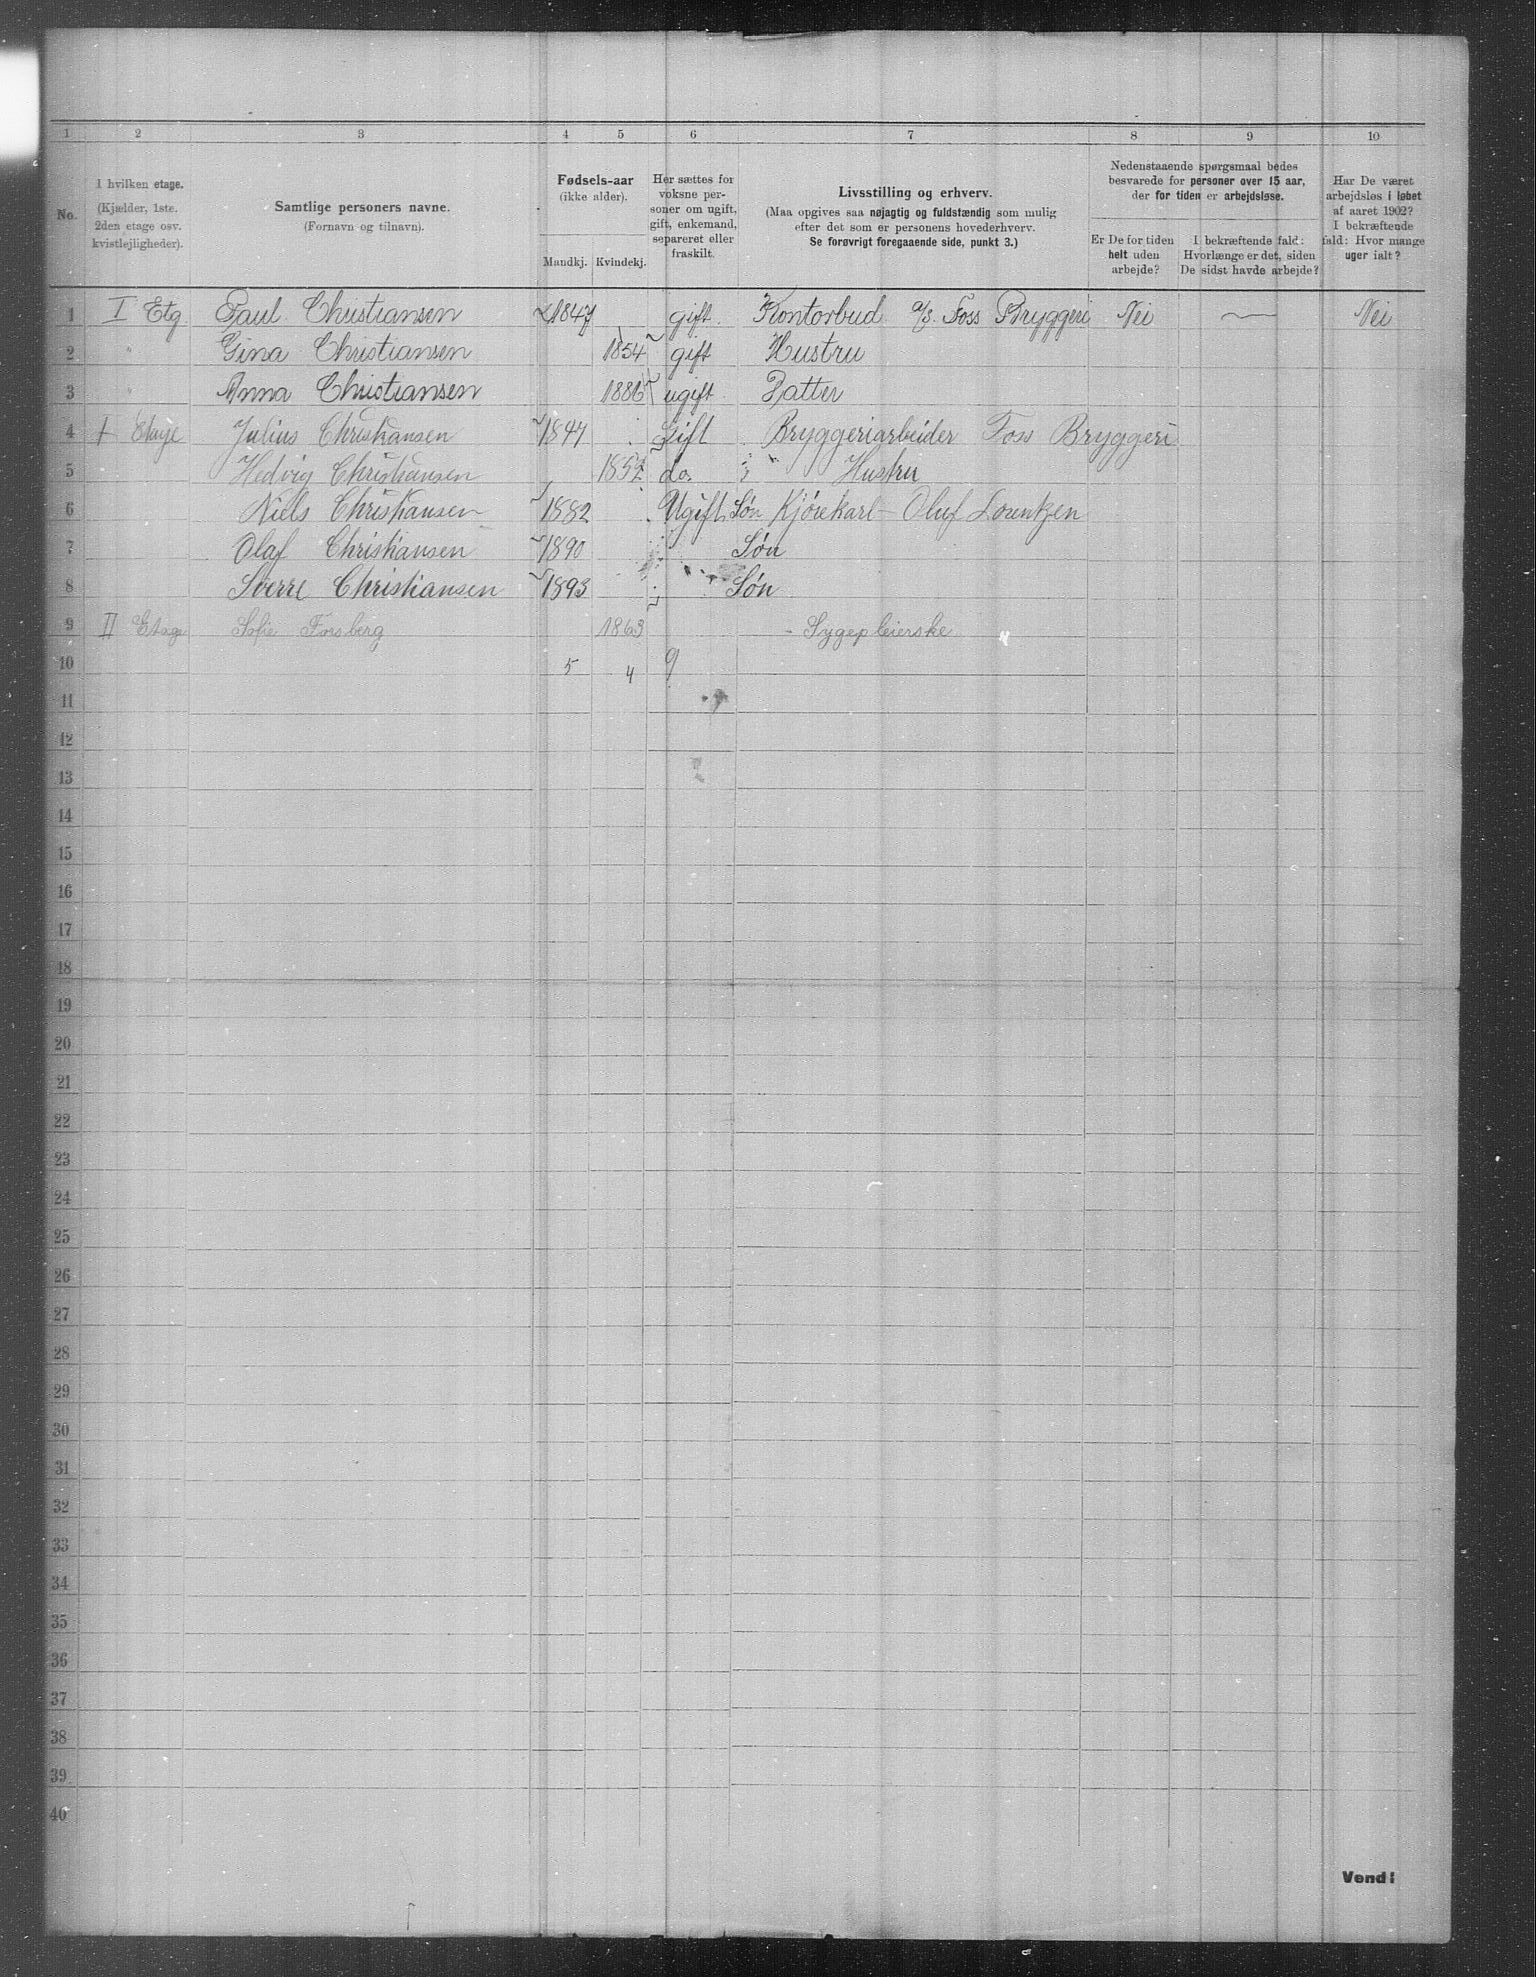 1 2 3 4 5 6 7 8 9 10
No.
I hvilken etage. (Kjælder, 1ste. 2den etage osv. kvistlejligheder).
Samtlige personers navne. (Fornavn og tilnavn).
Fødsels-aar (ikke alder).
Mandkj. Kvindekj.
Her sættes for voksne personer om ugift, gift, enkemand, separeret eller fraskilt.
Livsstilling og erhverv.
(Maa opgives saa nøjagtig og fuldstændig som mulig efter det som er personens hovederhverv. Se forøvrigt foregaaende side, punkt 3.)
Nedenstaaende spørgsmaal bedes besvarede for personer over 15 aar, der for tiden er arbejdsløse.
Er De for tiden helt uden arbejde?
I bekræftende fald: Hvorlænge er det, siden De sidst havde arbejde?
Har De været arbejdsløs i løbet af aaret 1902? I bekræftende fald: Hvor mange uger ialt?
1 I Etg Paul Christiansen 1847 gift. Kontorbud a/s. Foss Bryggeri Nei — Nei
2 " Gina Christiansen 1854 gift Hustru
3 " Anna Christiansen 1886 ugift Datter
4 I Etage Julius Christiansen 1847 Gift Bryggeriarbeider Foss Bryggeri
5 Hedvig Christiansen 1852 do. " " Hustru
6 Niels Christiansen 1882 Ugift Søn Kjørekarl - Oluf Lorentzen
7 Olaf Christiansen 1890 Søn
8 Sverre Christiansen 1893 Søn
9 II Etage Sofie Forsberg 1863 - Sygepleierske
10 5 4 9
11
12
13
14
15
16
17
18
19
20
21
22
23
24
25
26
27
28
29
30
31
32
33
34
35
36
37
38
39
40
Vend!